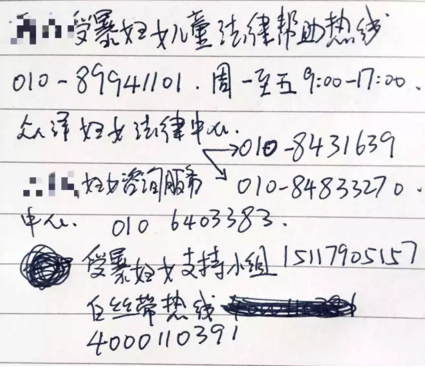 受暴妇女儿童法律帮助热线
010-89941101.周一至五9:00-17:00.
众泽妇女法律中心.
010-8431639
妇女咨询服务 010-84833270.
中心. 010 6403383.
受暴妇女支持小组 15117905157
白丝带热线
4000110391